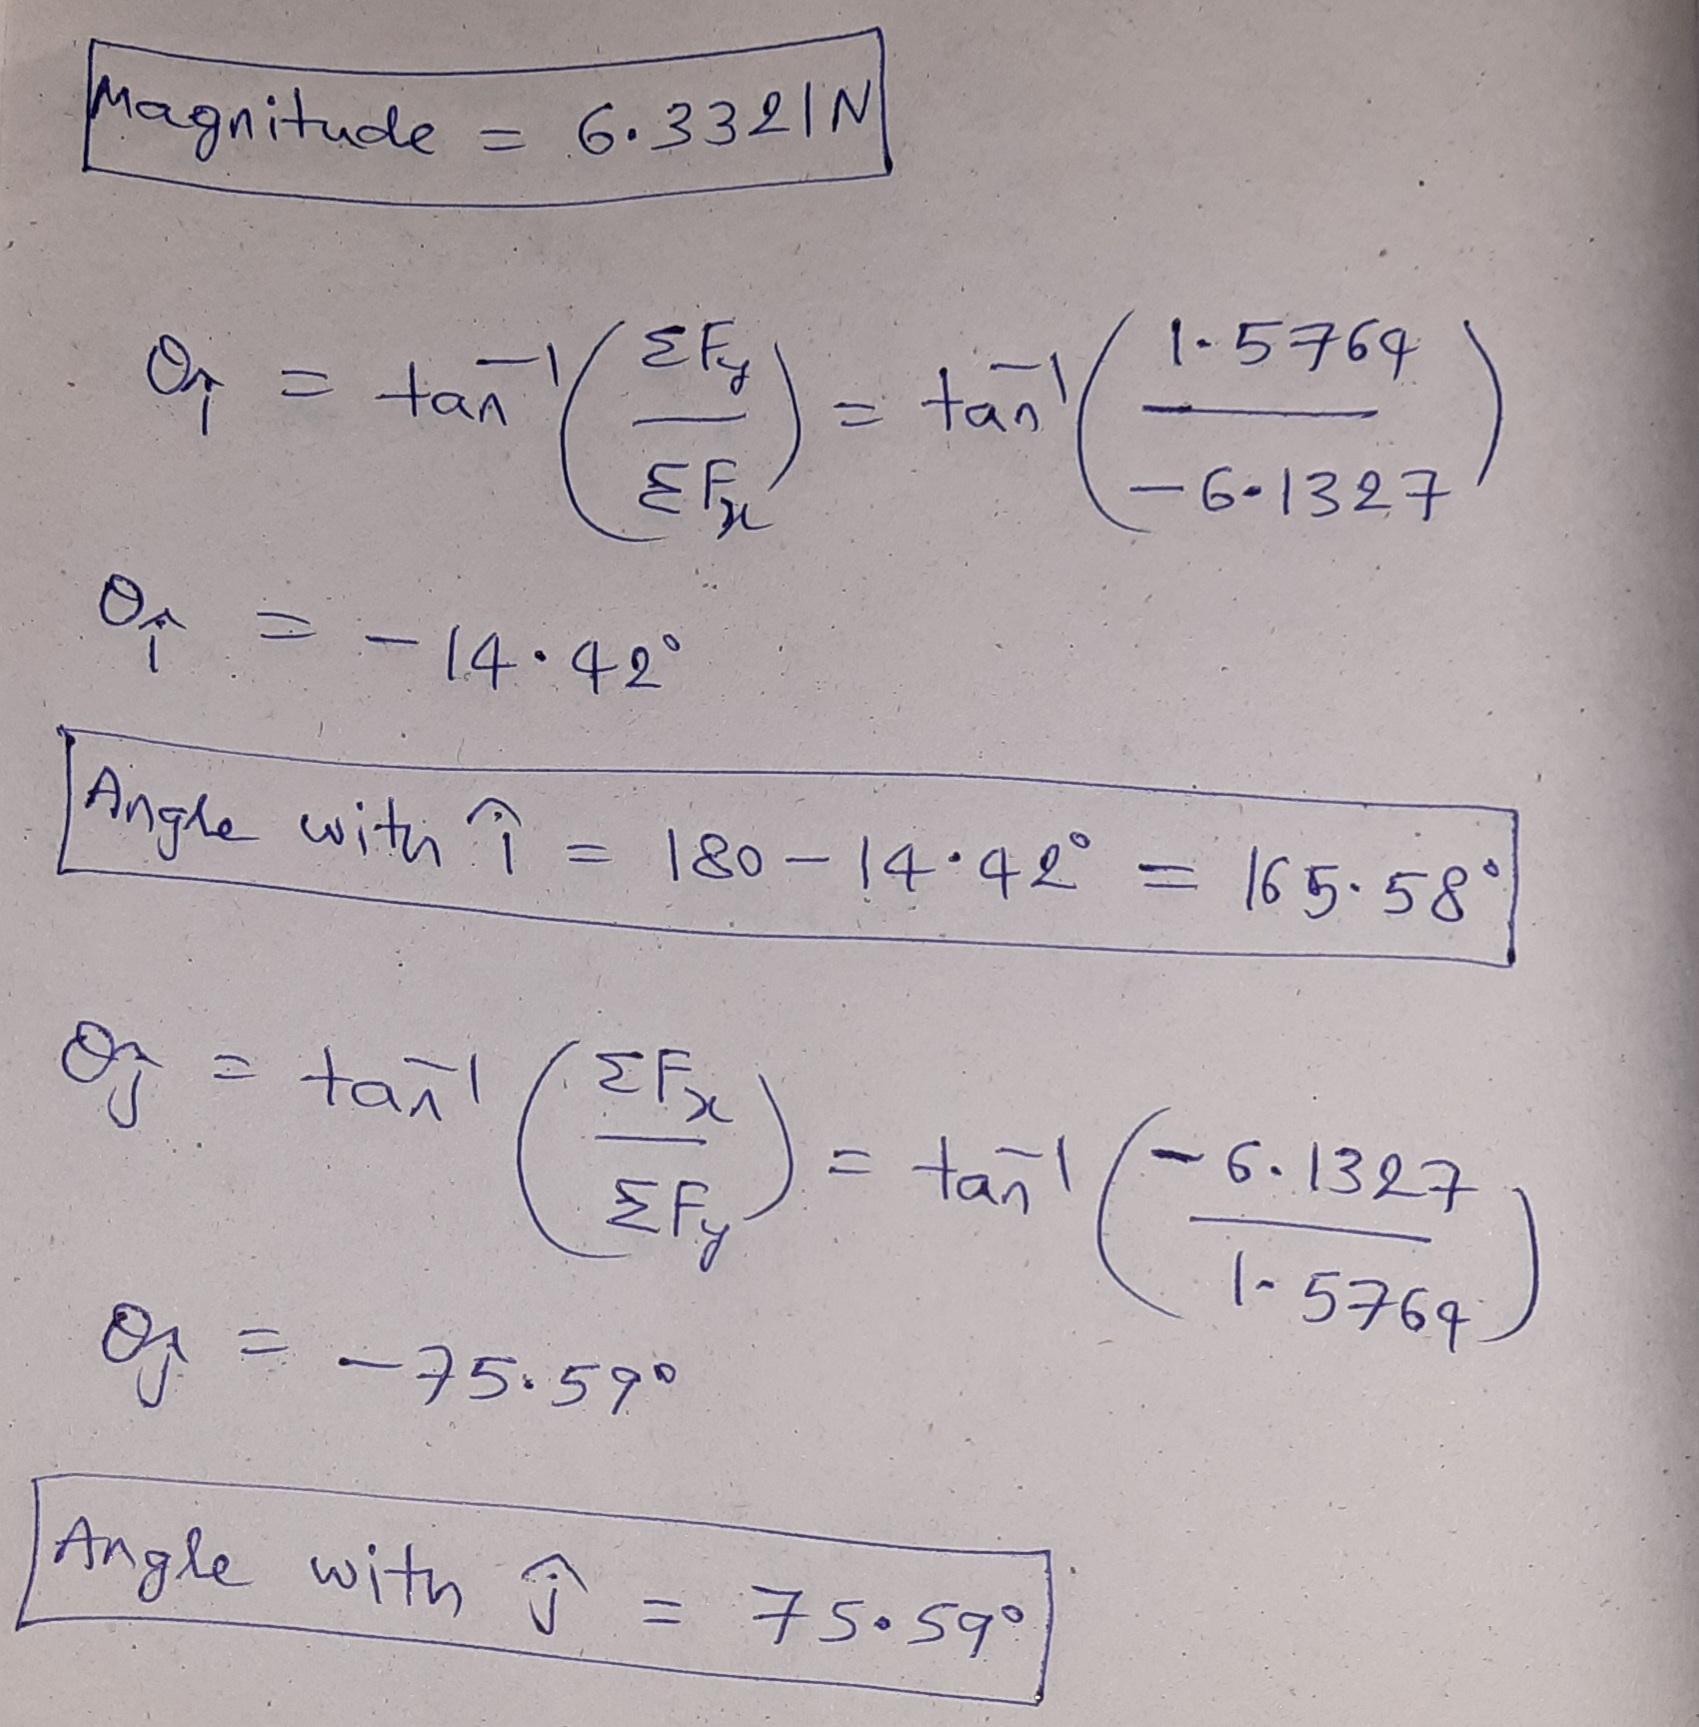 Magnitude = 6.3321N
θî = tan⁻¹(ΣFy/ΣFx) = tan⁻¹(1.5764/-6.1327)
θî = -14.42°
Angle with î = 180-14.42° = 165.58°
θĵ = tan⁻¹(ΣFx/ΣFy) = tan⁻¹(-6.1327/1.5764)
θĵ = -75.59°
Angle with ĵ = 75.59°